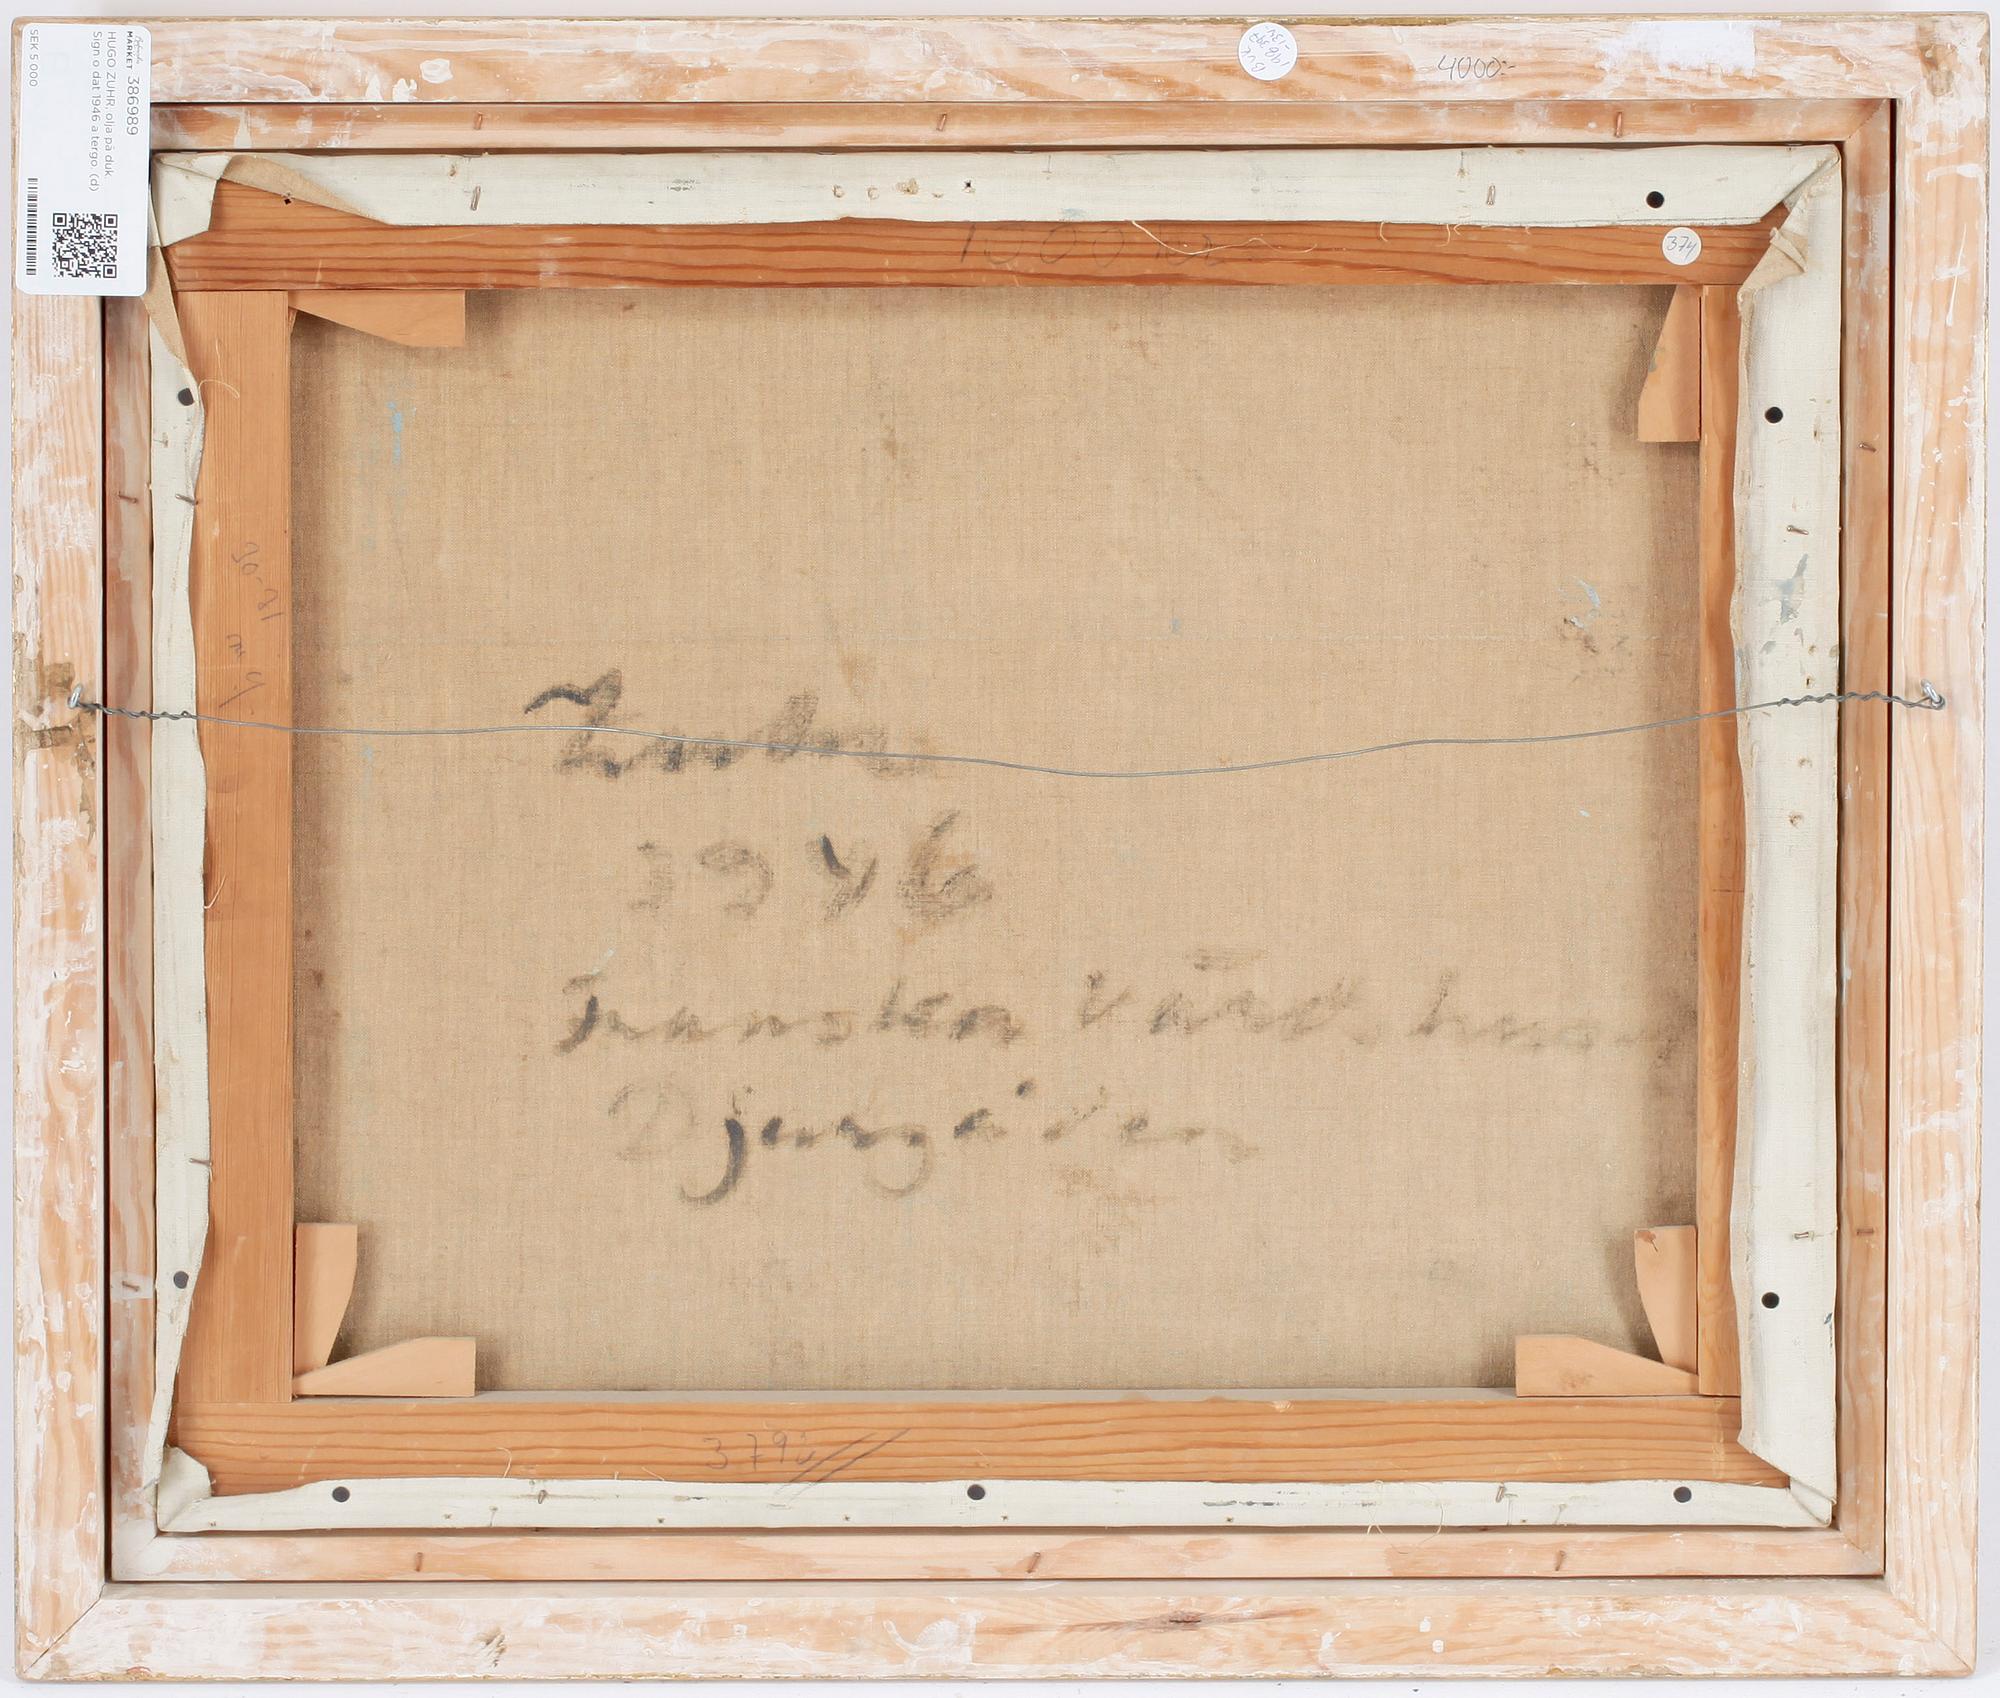 MARKET 386989
HUGO ZUHR, olja på duk.
Sign o dat 1946 a tergo (d)
SEK 5 000
4000:-
1000
374
Zuhr
1946
Franska Värdshuset
Djurgården